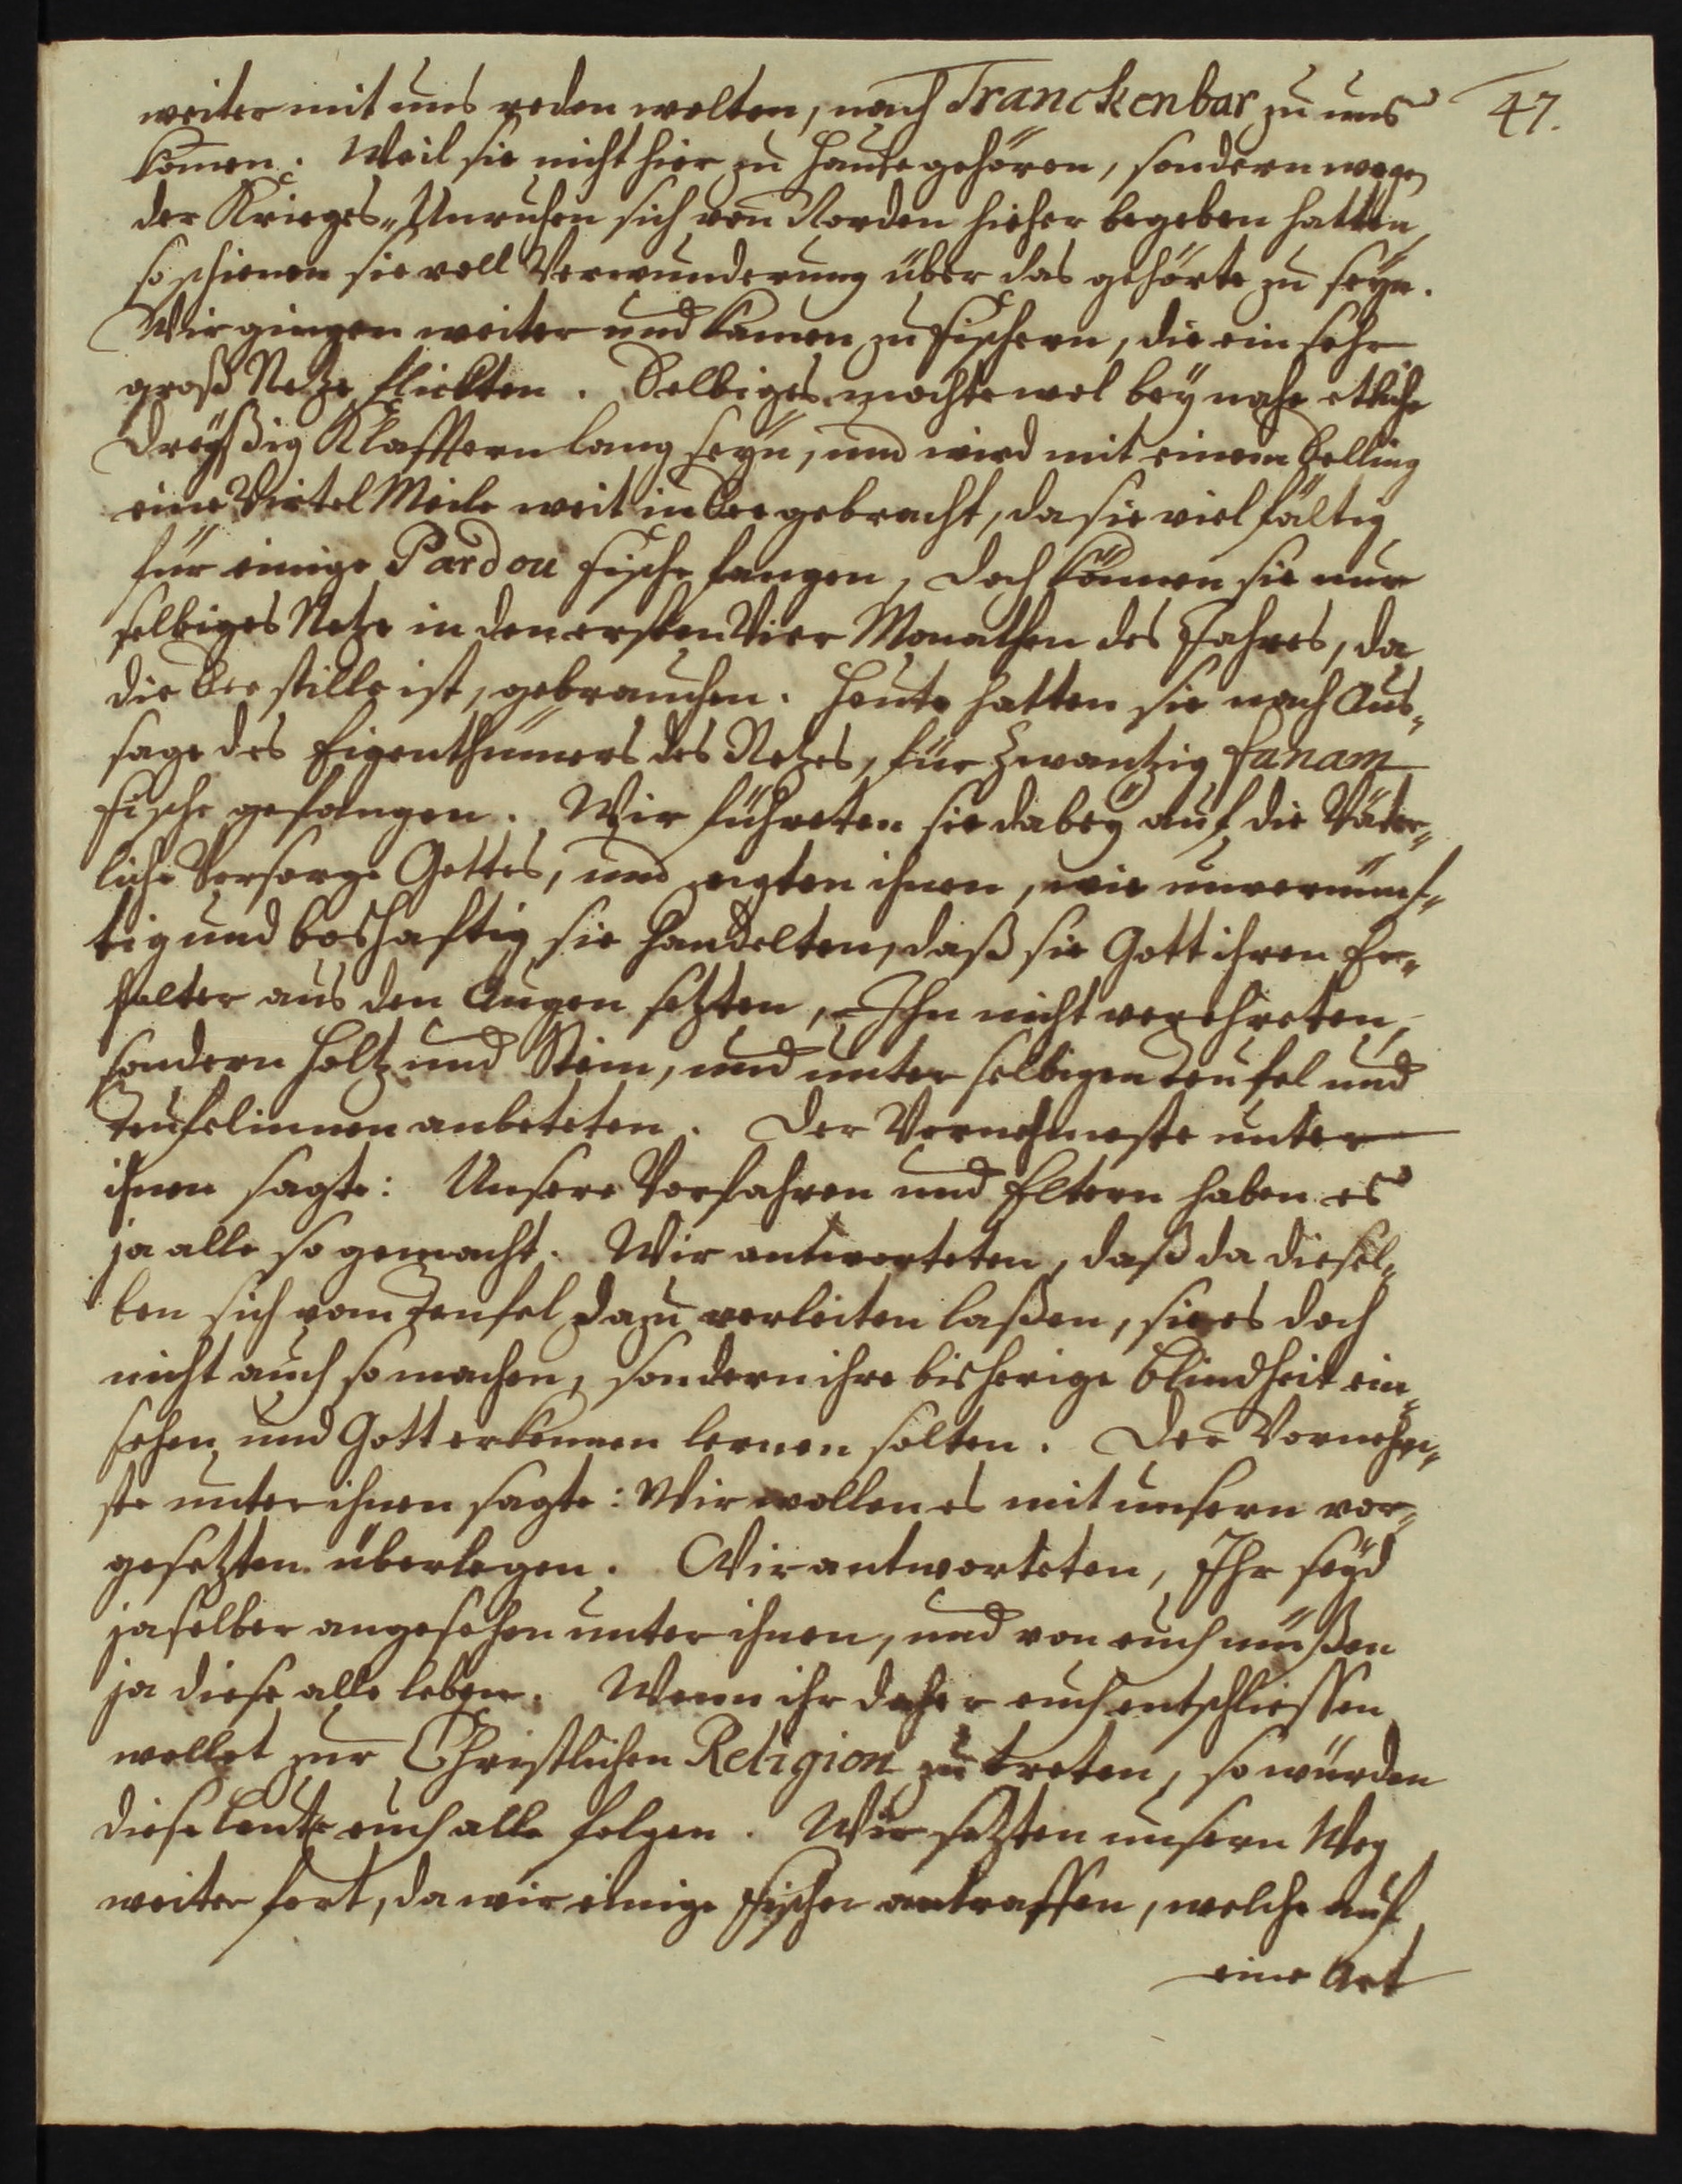 47.
weiter mit uns reden wolten, nach Tranckenbar zu uns
komen. Weil sie nicht hier zu Hause gehören, sondern wegen
der Krieges-Unruhen sich von Norden hieher begeben hatten,
so schienen sie voll Verwunderung über das gehörte zu seyn.
Wir gingen weiter und kamen zu Fischern, die ein sehr
groß Netze flickten. Selbiges mochte wol bey nahe etliche
dreyßig Klafftern lang seyn, und wird mit einem Selling
eine Virtel Meile weit in See gebracht, da sie viel fältig
für einige Pardou Fische fangen, doch können sie nur
selbiges Netze in den ersten Vier Monathen des Jahres, da
die See stille ist, gebrauchen. Heute hatten sie nach Aus-
sage des Eigenthümers des Netzes, für Zwantzig Fanam
Fische gefangen. Wir führeten sie dabey auf die Väter-
liche Vorsorge Gottes, und zeigten ihnen, wie unvernünf-
tig und boshafftig sie handelten, daß sie Gott ihren Er-
halter aus den Augen setzten, Ihn nicht verehreten,
sondern Holtz und Stein, und unter selbigen Teufel und
Teufelinnen anbeteten. Der Vornehmeste unter
ihnen sagte: Unsere Vorfahren und Eltern haben es
ja alle so gemacht. Wir antworteten, daß da diesel-
ben sich vom Teufel dazu verleiten laßen, sie es doch
nicht auch so machen, sondern ihre bisherige Blindheit ein-
sehen und Gott erkennen lernen solten. Der Vornehm-
ste unter ihnen sagte: Wir wollen es mit unsern vor-
gesetzten überlegen. Wir antworteten, Ihr seyd
ja selber angesehen unter ihnen, und von euch müßen
ja diese alle leben. Wenn ihr daher euch entschliessen
wollet zur Christlichen Religion zu treten, so würden
diese Leute euch alle folgen. Wir setzten unsern Weg
weiter fort, da wir einige Fischer antraffen, welche auf
eine Art